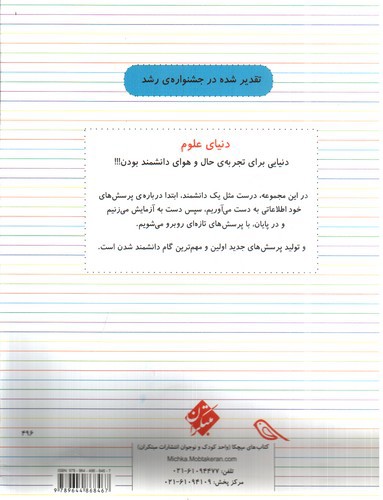 تقدیر شده در جشنواره‌ی رشد
دنیای علوم
دنیایی برای تجربه‌ی حال و هوای دانشمند بودن!!!
در این مجموعه، درست مثل یک دانشمند، ابتدا درباره‌ی پرسش‌های
خود اطلاعاتی به دست می‌آوریم، سپس دست به آزمایش می‌زنیم
و در پایان، با پرسش‌های تازه‌ای روبرو می‌شویم.
و تولید پرسش‌های جدید اولین و مهم‌ترین گام دانشمند شدن است.
۴۹۶
مبتکران
کتاب‌های میچکا (واحد کودک و نوجوان انتشارات مبتکران)
Michka.Mobtakeran.com
تلفن: ۶۱۰۹۴۴۷۷-۰۲۱
مرکز پخش: ۶۱۰۹۴۱۰۹-۰۲۱
9789644868467